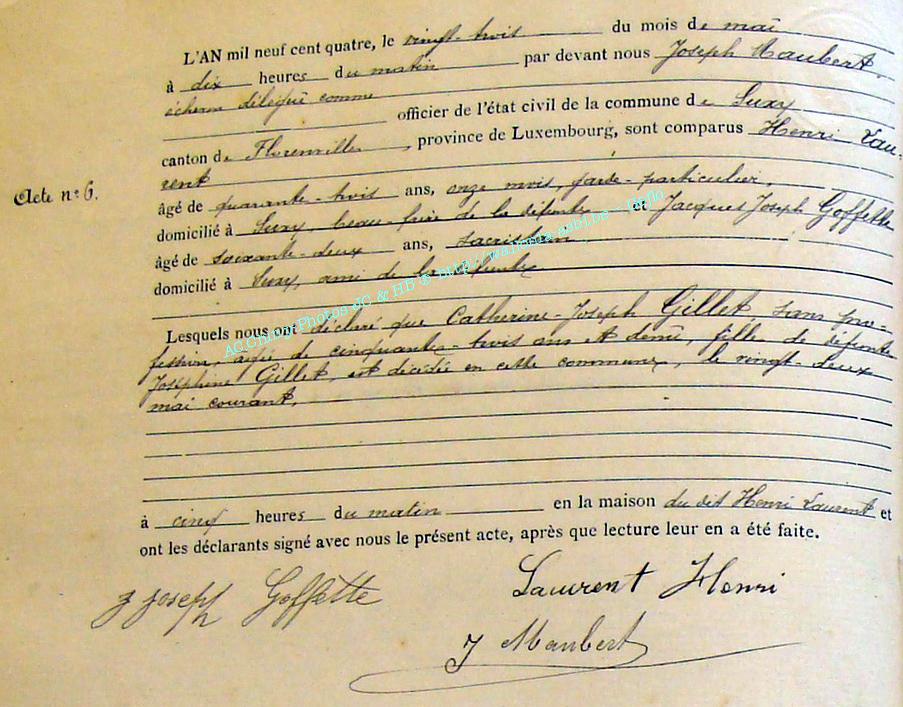 L'AN mil neuf cent quatre, le vingt-trois du mois de mai
à dix heures du matin par devant nous Joseph Maubert,
échevin délégué comme
officier de l'état civil de la commune de Suxy
canton de Florenville, province de Luxembourg, sont comparus Henri Lau-
rent
Acte n° 6.
âgé de quarante-trois ans, onze mois, garde-particulier,
domicilié à Suxy, beau-frère de la défunte et Jacques Joseph Goffette
âgé de soixante-deux ans, sacristain
domicilié à Suxy, ami de la défunte
Lesquels nous ont déclaré que Catherine-Joseph Gillet, sans pro-
fession, âgée de cinquante-trois ans et demi, fille de défunte
Joséphine Gillet, est décédée en cette commune, le vingt-deux
mai courant,
à cinq heures du matin en la maison du dit Henri Laurent et
ont les déclarants signé avec nous le présent acte, après que lecture leur en a été faite.
J Joseph Goffette
Laurent Henri
J Maubert
AC.Chiny Photos JC & HB ©